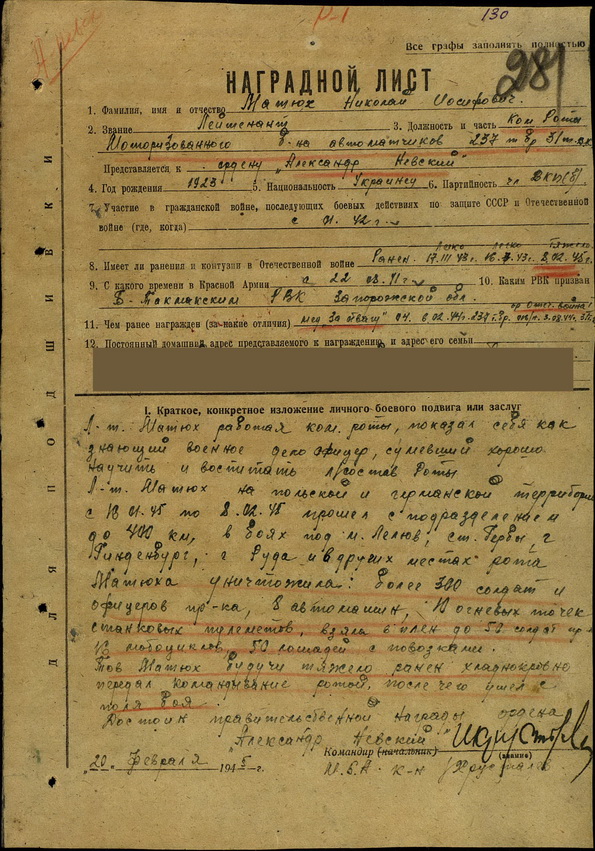 Р-1
130
281
Все графы заполнять полностью
НАГРАДНОЙ ЛИСТ
1. Фамилия, имя и отчество Матюх Николай Иосифович.
2. Звание Лейтенант 3. Должность и часть Ком. Роты
Моторизованного б-на автоматчиков 237 т бр 31 т.
Представляется к ордену "Александр Невский"
4. Год рождения 1923 5. Национальность Украинец 6. Партийность чл ВКП(б)
7. Участие в гражданской войне, последующих боевых действиях по защите СССР и Отечественной
войне (где, когда) с 42 г
легко легко тяжело
8. Имеет ли ранения и контузии в Отечественной войне Ранен 17.III 43 г. 43 г. 8.02.45 г.
9. С какого времени в Красной Армии с 22 41 г 10. Каким РВК призван
Б-Токмакским РВК Запорожской обл.
ор Отеч. война I
11. Чем ранее награжден (за какие отличия) мед "За отвагу" 237 т. бр.
12. Постоянный домашний адрес представляемого к награждению и адрес его семьи
I. Краткое, конкретное изложение личного боевого подвига или заслуг
Л-т. Матюх работая ком. роты, показал себя как
знающий военное дело офицер, сумевший хорошо
научить и воспитать л/состав Роты
Л-т. Матюх на польской и германской территории
с 45 по 8.02.45 прошел с подразделением
до 400 км, в боях под м. Лелюв, ст. Гербы, г
Гинденбург, г Руда и в других местах рота
Матюха уничтожила: более 300 солдат и
офицеров пр-ка, 8 автомашин, 10 огневых точек
станковых пулеметов, взяла в плен до 50 солдат пр-
мотоциклов, 50 лошадей с повозками.
Тов Матюх будучи тяжело ранен хладнокровно
передал командование ротой, после чего ушел с
поля боя.
Достоин правительственной награды ордена
"Александр Невский"
Командир (начальник)
"20" Февраля 1945 г. М.Б.А. к-н
ДЛЯ ПОДШИВКИ